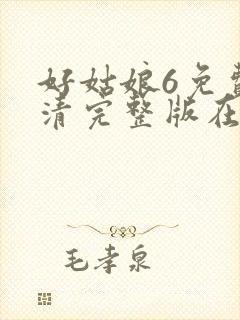 好姑娘6免费
清完整版在
毛孝泉